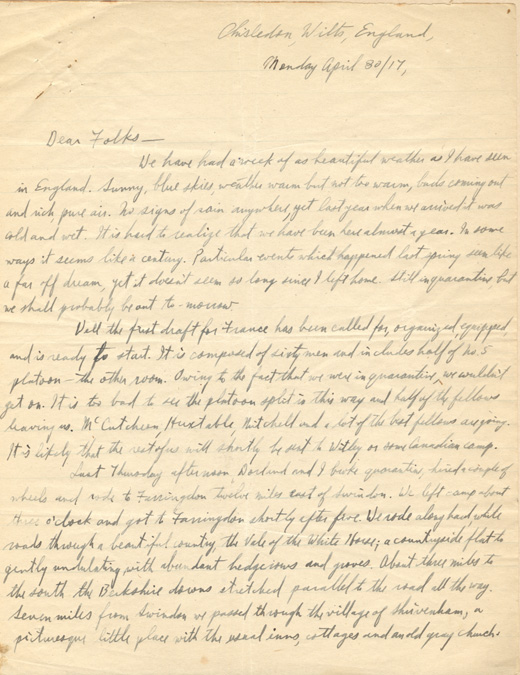 Chisledon, Wilts, England,
Monday April 30/17,
Dear Folks—
We have had a week of as beautiful weather as I have seen
in England. Sunny, blue skies, weather warm but not too warm, buds coming out
and rich pure air. No signs of rain anywhere, yet last year when we arrived it was
cold and wet. It is hard to realize that we have been here almost a year. In some
ways it seems like a century. Particular events which happened last spring seem like
a far off dream, yet it doesn't seem so long since I left home. Still in quarantine but
we shall probably be out to-morrow.
Well the first draft for France has been called for, organized, equipped
and is ready to start. It is composed of sixty men and includes half of No. 5
platoon — the other room. Owing to the fact that we were in quarantine, we wouldn't
get on. It is too bad to see the platoon split in this way and half of the fellows
leaving us. McCutcheon, Huxtable, Mitchell and a lot of the best fellows are going.
It is likely that the rest of us will shortly be sent to Witley or some Canadian camp.
Last Thursday afternoon, and I broke quarantine, hired a couple of
wheels and rode to Farringdon twelve miles east of Swindon. We left camp about
three o'clock and got to Farringdon shortly after five. We rode along hard, white
roads, through a beautiful country, the Vale of the White Horse; a countryside flat to
gently undulating with abundant hedgerows and groves. About three miles to
the south the Berkshire downs stretched parallel to the road all the way.
Seven miles from Swindon we passed through the village of Shrivenham, a
picturesque little place with the usual inns, cottages and an old gray church.